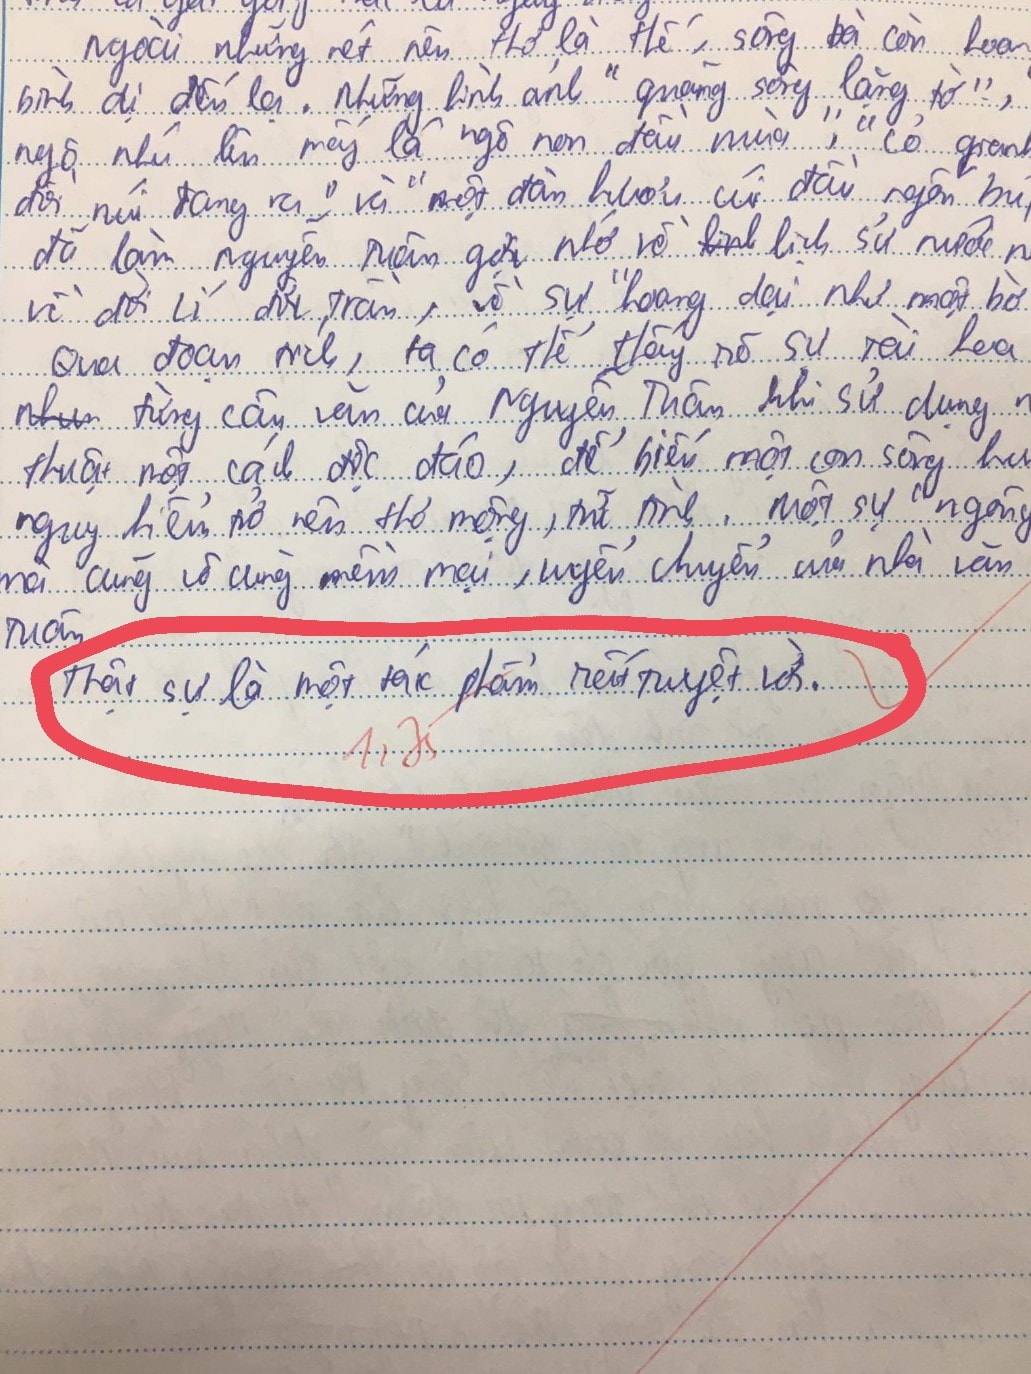 Ngoài những nét nên thơ là thế, sông đà còn hoan
bình dị đến lạ. Những hình ảnh "quãng sông lặng tờ",
ngô nhú lên mấy lá ngô non đầu mùa", "cỏ gianh
đồi núi đang ra" và "một đàn hươu cúi đầu ngốn bú
đã làm Nguyễn Tuân gợi nhớ về lịch sử nước n
về đời Lí đời Trần, về sự "hoang dại như một bờ
Qua đoạn trích, ta có thể thấy rõ sự tài hoa
từng câu văn của Nguyễn Tuân khi sử dụng n
thuật một cách độc đáo, để biến một con sông hu
nguy hiểm trở nên thơ mộng, trữ tình. Một sự "ngông
mà cũng vô cùng mềm mại, uyển chuyển của nhà văn
Tuân
Thật sự là một tác phẩm rất tuyệt vời.
1,75